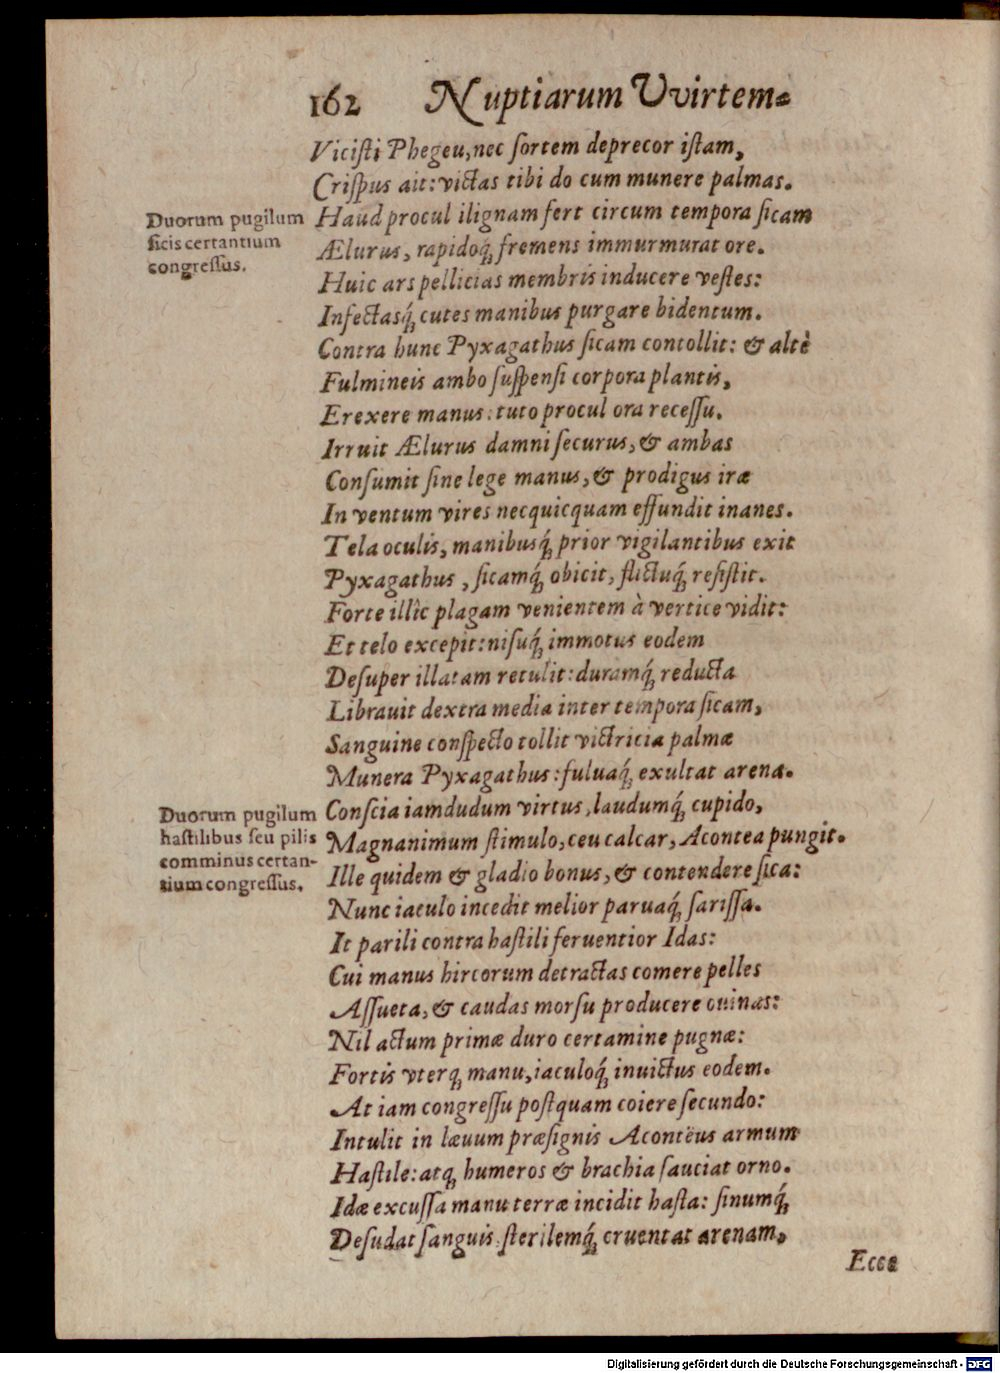 162 Nuptiarum Vvirtem-
Viciſti Phegeu, nec ſortem deprecor iſtam,
Criſpus ait: victas tibi do cum munere palmas.
Duorum pugilum
ſicis certantium
congreſſus.
Haud procul ilignam fert circum tempora ſicam
Ælurus, rapidoq́; fremens immurmurat ore.
Huic ars pellicias membris inducere veſtes:
Infectasq́; cutes manibus purgare bidentum.
Contra hunc Pyxagathus ſicam contollit: & altè
Fulmineis ambo ſuſpenſi corpora plantis,
Erexere manus: tuto procul ora receſſu.
Irruit Ælurus damni ſecurus, & ambas
Conſumit ſine lege manus, & prodigus iræ
In ventum vires necquicquam effundit inanes.
Tela oculis, manibusq́; prior vigilantibus exit
Pyxagathus, ſicamq́; obicit, flictuq́; reſiſtit.
Forte illîc plagam venientem à vertice vidit:
Et telo excepit: niſuq́; immotus eodem
Deſuper illatam retulit: duramq́; reducta
Librauit dextra media inter tempora ſicam,
Sanguine conſpecto tollit victricia palmæ
Munera Pyxagathus: fuluaq́; exultat arena.
Duorum pugilum
haſtilibus ſeu pilis
comminus certan-
tium congreſſus.
Conſcia iamdudum virtus, laudumq́; cupido,
Magnanimum ſtimulo, ceu calcar, Acontea pungit.
Ille quidem & gladio bonus, & contendere ſica:
Nunc iaculo incedit melior paruaq́; ſariſſa.
It parili contra haſtili feruentior Idas:
Cui manus hircorum detractas comere pelles
Aſſueta, & caudas morſu producere ouinas:
Nil actum primæ duro certamine pugnæ:
Fortis vterq; manu, iaculoq́; inuictus eodem.
At iam congreſſu poſtquam coiere ſecundo:
Intulit in læuum præſignis Acontëus armum
Haſtile: atq; humeros & brachia ſauciat orno.
Idæ excuſſa manu terræ incidit haſta: ſinumq́;
Deſudat ſanguis ſterilemq́; cruentat arenam.
Ecce
Digitalisierung gefördert durch die Deutsche Forschungsgemeinschaft - DFG